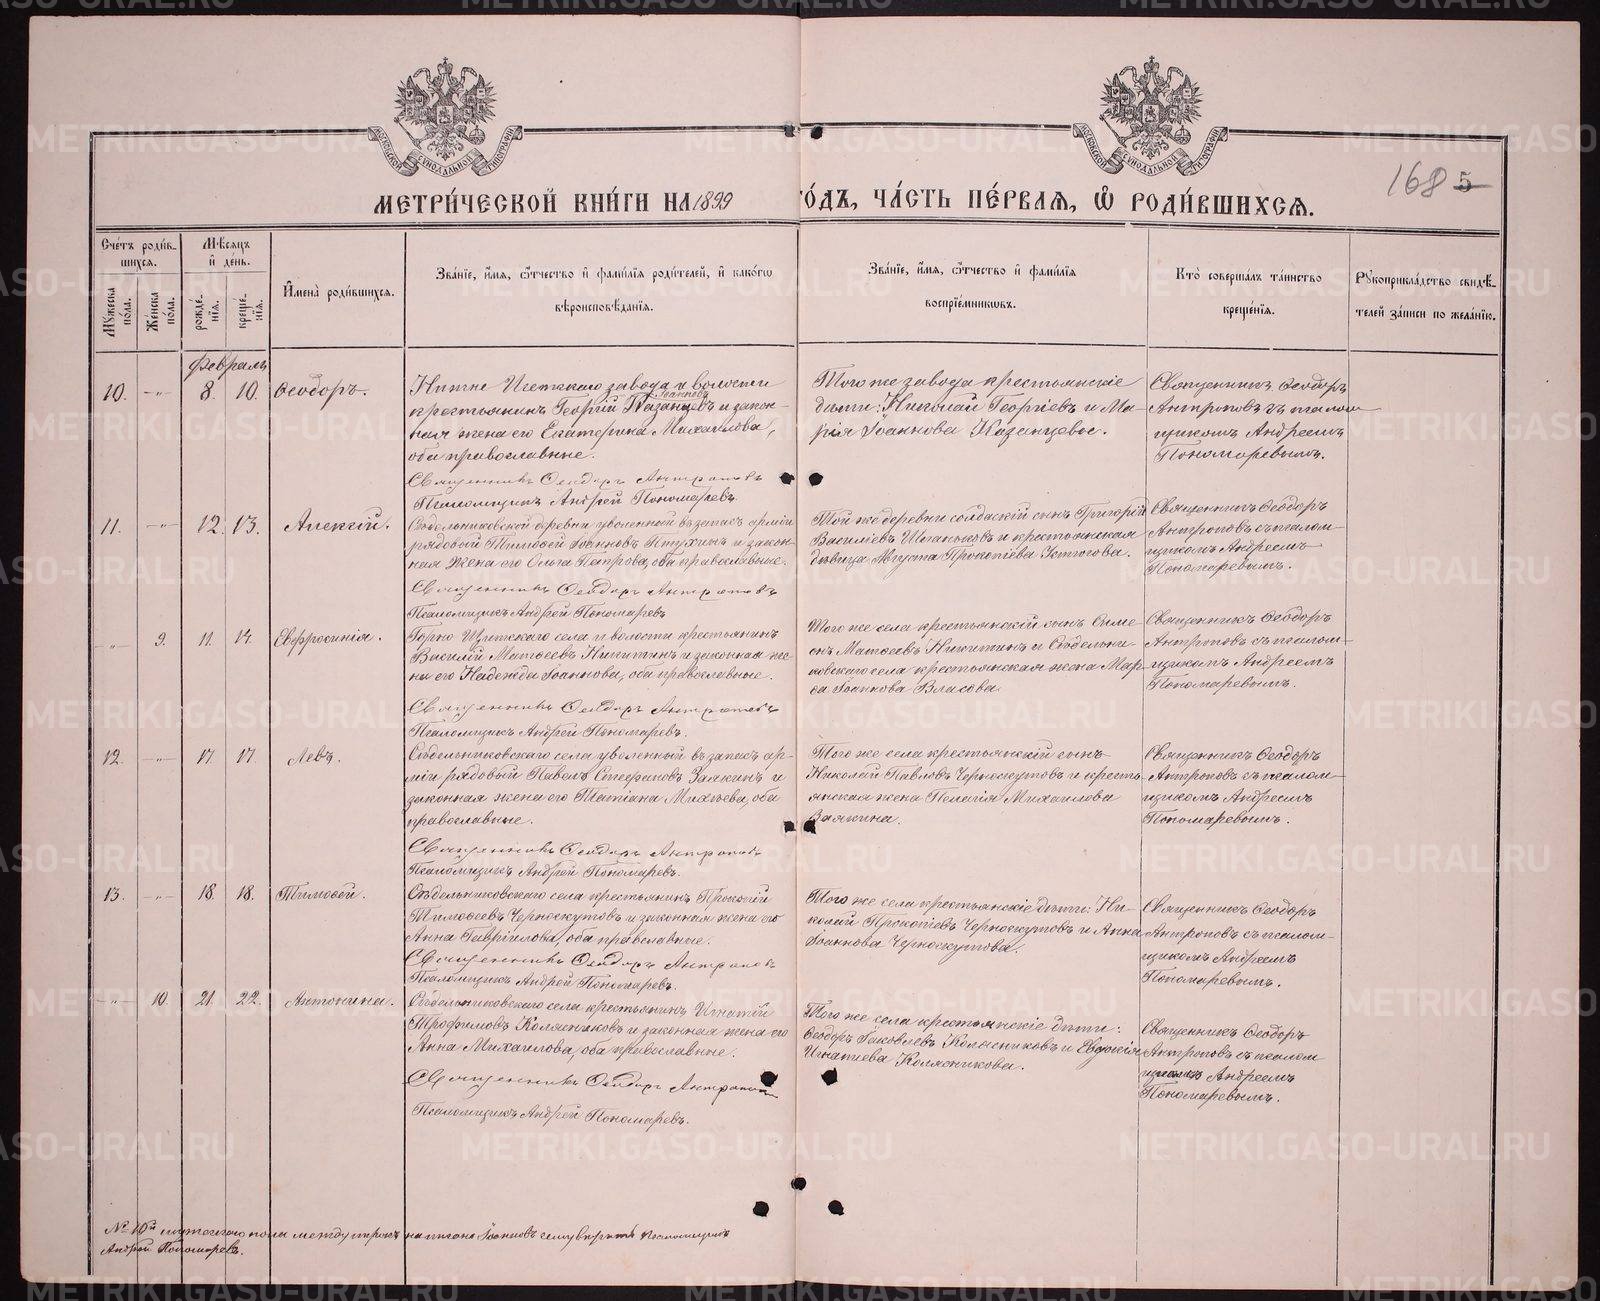 МОСКОВСКОЙ СѴНОДАЛЬНОЙ ТИПОГРАФІИ
МОСКОВСКОЙ СѴНОДАЛЬНОЙ ТИПОГРАФІИ
168 5
МЕТРИ́ЧЕСКОЙ КНИ́ГИ НА 1899 ГО́ДЪ, ЧА́СТЬ ПЕ́РВАЯ, Ѡ РОДИ́ВШИХСЯ.
Сче́тъ роди́вшихся.
Му́жеска по́ла.
Же́нска по́ла.
Мѣ́сяцъ и҆ день.
рожде́нїя.
креще́нїя.
И҆мена̀ роди́вшихся.
Зва́нїе, и҆́мя, ѻ҆́тчество и҆ фами́лїя роди́телей, и҆ како́гѡ вѣроисповѣ́данїя.
Зва́нїе, и҆́мя, ѻ҆́тчество и҆ фами́лїя воспрїе́мниковъ.
Кто̀ соверша́лъ та́инство креще́нїя.
Рꙋкоприкла́дство свидѣ́телей за́писи по жела́нїю.
Февраль
10. -"- 8. 10. Ѳеодоръ.
Нижне Исетскаго завода и волости
крестьянинъ Георгій Іоанновъ Казанцевъ и закон-
ная жена его Екатерина Михаилова,
оба православные.
Священникъ Ѳеодоръ Антроповъ
Псаломщикъ Андрей Пономаревъ.
Того же завода крестьянскіе
дѣти: Николай Георгіевъ и Ма-
рія Іоаннова Казанцевы.
Священникъ Ѳеодоръ
Антроповъ съ псалом-
щикомъ Андреемъ
Пономаревымъ.
11. -"- 12. 13. Алексій.
Сѣдельниковской деревни уволенный въ запасъ арміи
рядовый Тимоѳей Іоанновъ Птухинъ и закон-
ная жена его Ольга Петрова, оба православные.
Священникъ Ѳеодоръ Антроповъ
Псаломщикъ Андрей Пономаревъ
Той же деревни солдаскій сынъ Григорій
Василіевъ и крестьянская
дѣвица Августа Прокопіева
Священникъ Ѳеодоръ
Антроповъ съ псалом-
щикомъ Андреемъ
Пономаревымъ.
-"- 9. 11. 14. Евфросинія.
Горно Щитскаго села и волости крестьянинъ
Василій Матѳеевъ Никитинъ и законная же-
на его Надежда Іоаннова, оба православные.
Священникъ Ѳеодоръ Антроповъ
Псаломщикъ Андрей Пономаревъ.
Того же села крестьянскій сынъ Симе-
онъ Матѳеевъ Никитинъ и Сѣдельни-
ковскаго села крестьянская жена Мар-
ѳа Іоаннова Власова.
Священникъ Ѳеодоръ
Антроповъ съ псалом-
щикомъ Андреемъ
Пономаревымъ.
12. -"- 17. 17. Левъ.
Сѣдельниковскаго села уволенный въ запасъ ар-
міи рядовый Павелъ Стефановъ Заякинъ и
законная жена его Татіана Михѣева, оба
православные.
Священникъ Ѳеодоръ Антроповъ
Псаломщикъ Андрей Пономаревъ.
Того же села крестьянскій сынъ
Николай Павловъ Черноскутовъ и кресть-
янская жена Пелагія Михаилова
Заякина.
Священникъ Ѳеодоръ
Антроповъ съ псалом-
щикомъ Андреемъ
Пономаревымъ.
13. -"- 18. 18. Тимоѳей.
Сѣдельниковскаго села крестьянинъ Прокопій
Тимоѳеевъ Черноскутовъ и законная жена его
Анна Гавріилова, оба православные.
Священникъ Ѳеодоръ Антроповъ
Псаломщикъ Андрей Пономаревъ.
Того же села крестьянскіе дѣти: Ни-
колай Прокопіевъ Черноскутовъ и Анна
Іоаннова Черноскутова.
Священникъ Ѳеодоръ
Антроповъ съ псалом-
щикомъ Андреемъ
Пономаревымъ.
-"- 10. 21. 22. Антонина.
Сѣдельниковскаго села крестьянинъ Игнатій
Трофимовъ Колясниковъ и законная жена его
Анна Михаилова, оба православные.
Священникъ Ѳеодоръ Антроповъ
Псаломщикъ Андрей Пономаревъ.
Того же села крестьянскіе дѣти:
Ѳеодоръ Іаковлевъ Колясниковъ и Евдокія
Игнатіева Колясникова.
Священникъ Ѳеодоръ
Антроповъ съ псалом-
щикомъ Андреемъ
Пономаревымъ.
№ 10й мужескаго пола между строкъ написано Іоанновъ сему вѣрить Псаломщикъ
Андрей Пономаревъ.
METRIKI.GASO-URAL.RU